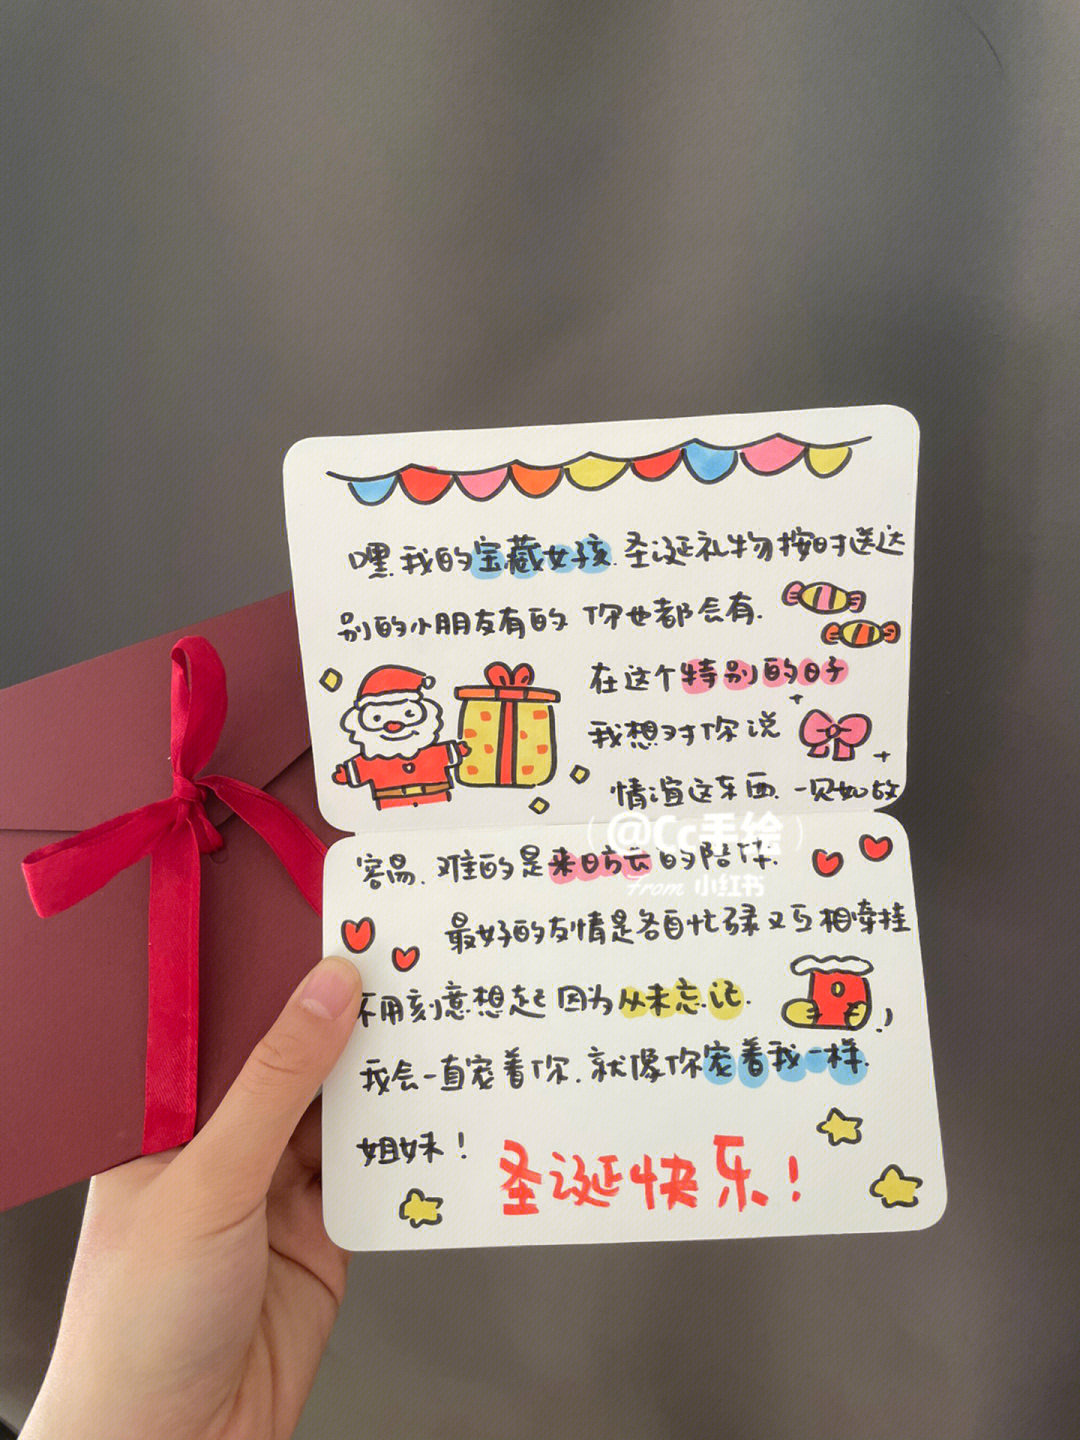 嘿.我的宝藏女孩.圣诞礼物按时送达
别的小朋友有的 你也都会有.
在这个特别的日子
我想对你说
情谊这东西.一见如故
(@Cc手绘)
容易.难的是来日方长的陪伴.
From 小红书
最好的友情是各自忙碌又互相牵挂
不用刻意想起 因为从未忘记.
我会一直宠着你.就像你宠着我一样.
姐妹！
圣诞快乐！